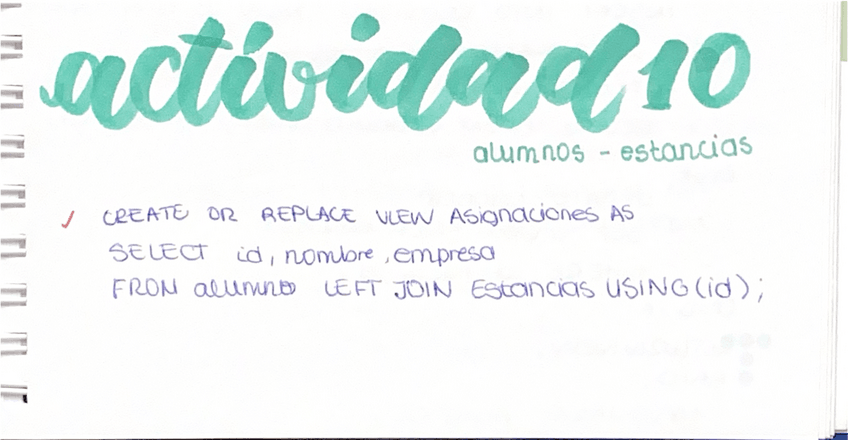 actividad 10
alumnos - estancias
✓ CREATE OR REPLACE VIEW Asignaciones AS
SELECT id, nombre, empresa
FROM alumno LEFT JOIN Estancias USING(id);